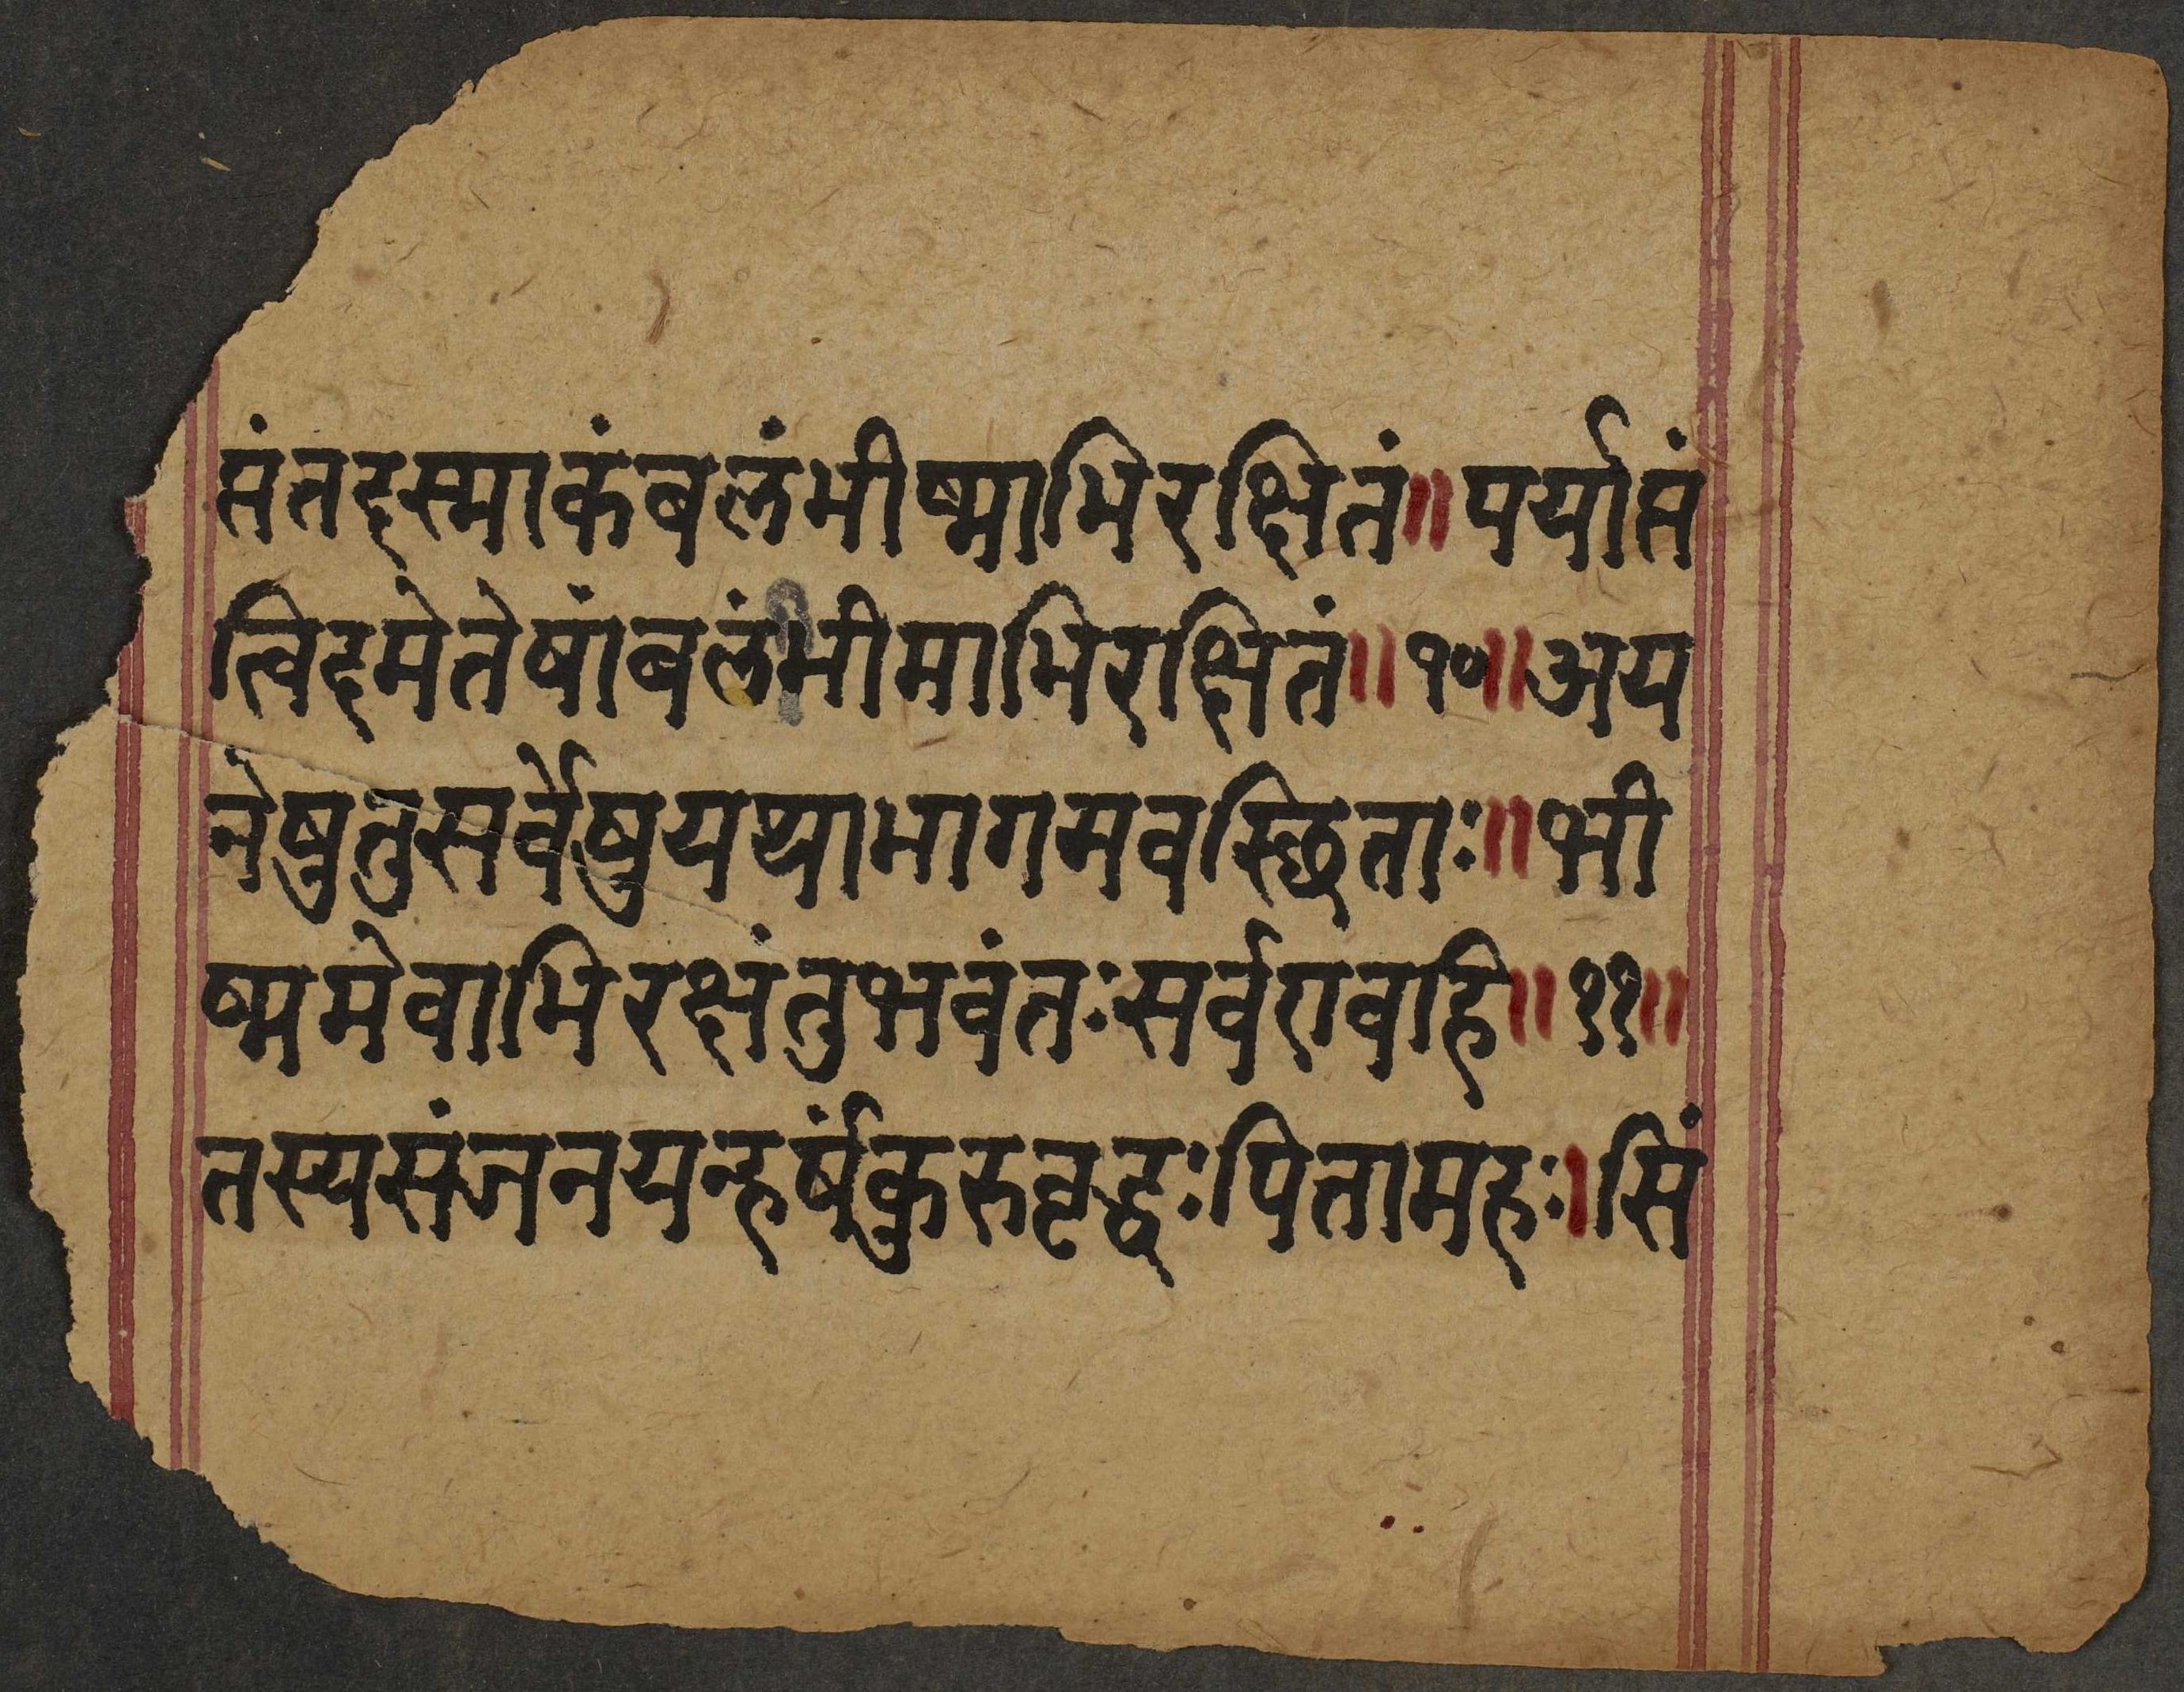 प्तंतदस्माकंबलंभीष्माभिरक्षितं॥पर्याप्तं
त्विदमेतेषांबलंभीमाभिरक्षितं॥१०॥अय
नेषुतुसर्वेषुयथाभागमवस्छिताः॥भी
ष्ममेवाभिरक्षंतुभवंतःसर्वएवहि॥११॥
तस्यसंजनयन्हर्षंकुरुवृद्धःपितामहः।सिं